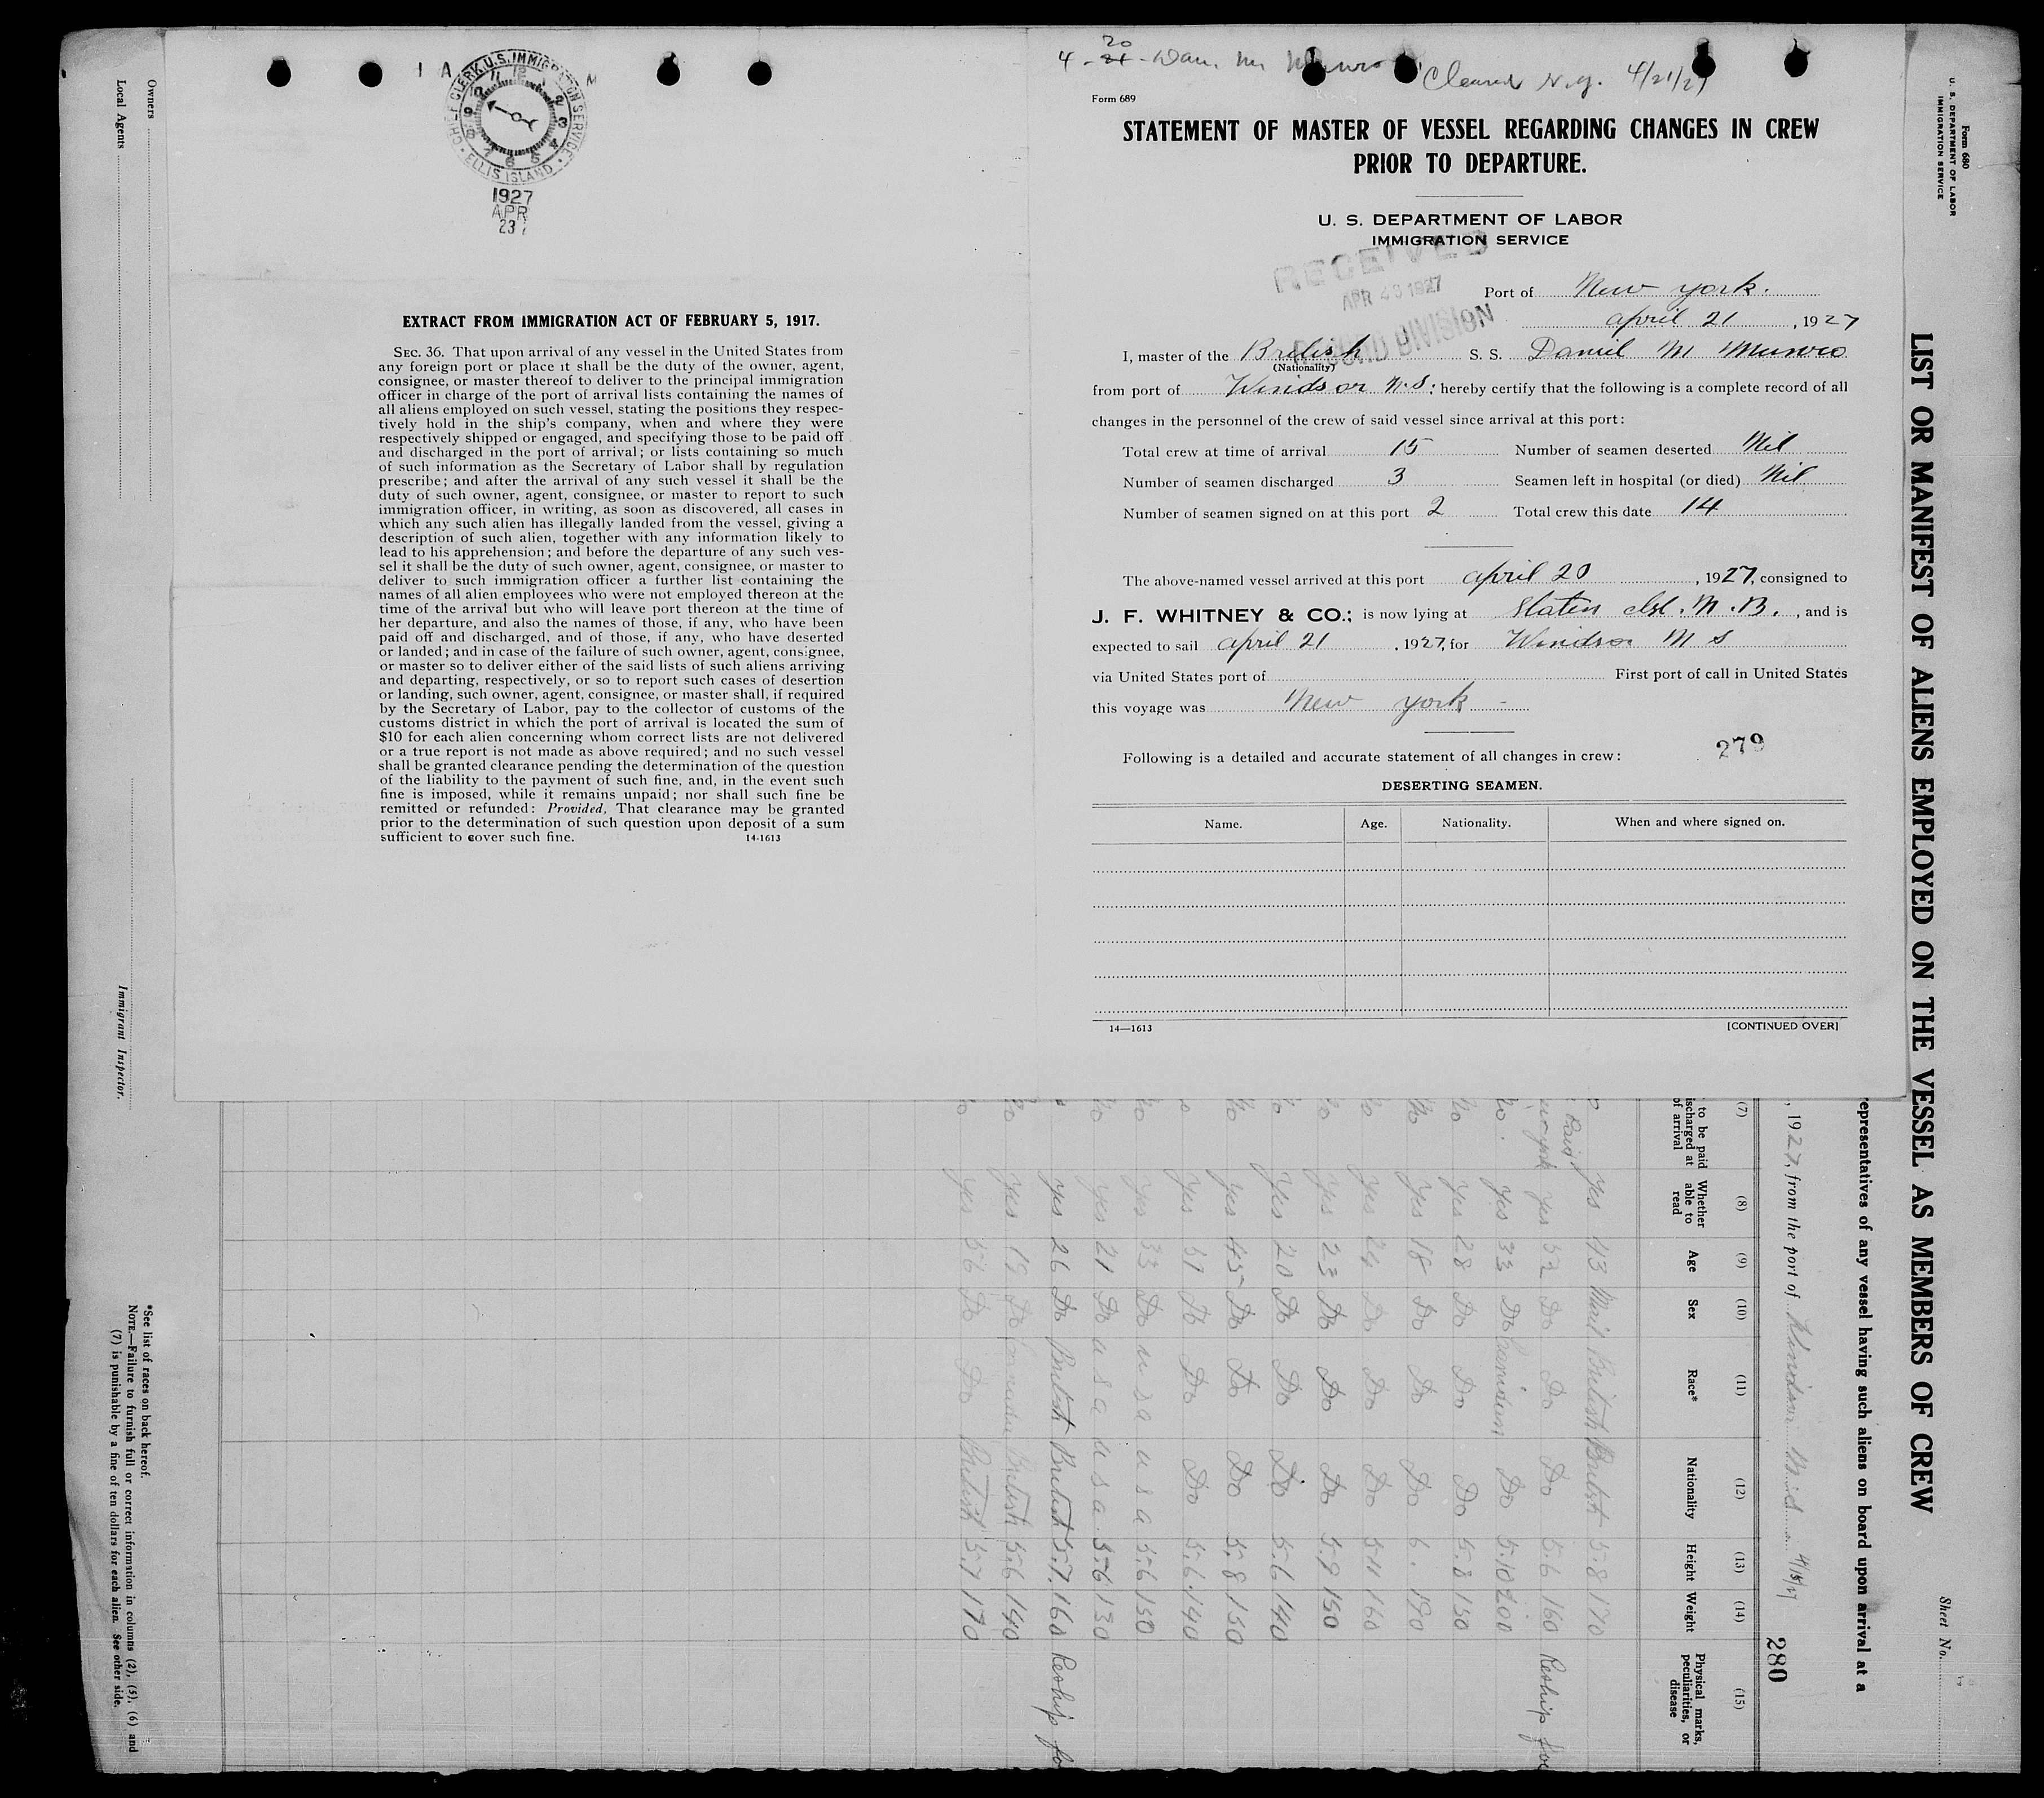 4 - 20 - Dan. M. Munro
Cleared N.Y. 4/21/27
Form 689
STATEMENT OF MASTER OF VESSEL REGARDING CHANGES IN CREW
PRIOR TO DEPARTURE.
U. S. DEPARTMENT OF LABOR
IMMIGRATION SERVICE
RECEIVED
APR 23 1927
DIVISION
Port of New York.
April 21, 1927
I, master of the British S. S. Daniel M Munro
(Nationality)
from port of Windsor N.S.; hereby certify that the following is a complete record of all
changes in the personnel of the crew of said vessel since arrival at this port:
Total crew at time of arrival 15 Number of seamen deserted Nil
Number of seamen discharged 3 Seamen left in hospital (or died) Nil
Number of seamen signed on at this port 2 Total crew this date 14
The above-named vessel arrived at this port April 20, 1927, consigned to
J. F. WHITNEY & CO.; is now lying at Staten Isl. N.B., and is
expected to sail April 21, 1927, for Windsor N S
via United States port of First port of call in United States
this voyage was New York -
Following is a detailed and accurate statement of all changes in crew:
279
DESERTING SEAMEN.
Name. Age. Nationality. When and where signed on.
14—1613
[CONTINUED OVER]
CHIEF CLERK U.S. IMMIGRATION SERVICE
ELLIS ISLAND
1927
APR
23
EXTRACT FROM IMMIGRATION ACT OF FEBRUARY 5, 1917.
SEC. 36. That upon arrival of any vessel in the United States from
any foreign port or place it shall be the duty of the owner, agent,
consignee, or master thereof to deliver to the principal immigration
officer in charge of the port of arrival lists containing the names of
all aliens employed on such vessel, stating the positions they respec-
tively hold in the ship's company, when and where they were
respectively shipped or engaged, and specifying those to be paid off
and discharged in the port of arrival; or lists containing so much
of such information as the Secretary of Labor shall by regulation
prescribe; and after the arrival of any such vessel it shall be the
duty of such owner, agent, consignee, or master to report to such
immigration officer, in writing, as soon as discovered, all cases in
which any such alien has illegally landed from the vessel, giving a
description of such alien, together with any information likely to
lead to his apprehension; and before the departure of any such ves-
sel it shall be the duty of such owner, agent, consignee, or master to
deliver to such immigration officer a further list containing the
names of all alien employees who were not employed thereon at the
time of the arrival but who will leave port thereon at the time of
her departure, and also the names of those, if any, who have been
paid off and discharged, and of those, if any, who have deserted
or landed; and in case of the failure of such owner, agent, consignee,
or master so to deliver either of the said lists of such aliens arriving
and departing, respectively, or so to report such cases of desertion
or landing, such owner, agent, consignee, or master shall, if required
by the Secretary of Labor, pay to the collector of customs of the
customs district in which the port of arrival is located the sum of
$10 for each alien concerning whom correct lists are not delivered
or a true report is not made as above required; and no such vessel
shall be granted clearance pending the determination of the question
of the liability to the payment of such fine, and, in the event such
fine is imposed, while it remains unpaid; nor shall such fine be
remitted or refunded: Provided, That clearance may be granted
prior to the determination of such question upon deposit of a sum
sufficient to cover such fine.
14-1613
Form 680
U. S. DEPARTMENT OF LABOR
IMMIGRATION SERVICE
LIST OR MANIFEST OF ALIENS EMPLOYED ON THE VESSEL AS MEMBERS OF CREW
Sheet No.
epresentatives of any vessel having such aliens on board upon arrival at a
, 1927, from the port of Windsor 
280
(7) (8) (9) (10) (11) (12) (13) (14) (15)
to be paid
ischarged at
of arrival
Whether
able to
read
Age
Sex
Race*
Nationality
Height
Weight
Physical marks,
peculiarities, or
disease
yes 43 Male British British 5.8 170
yes 52 Do Do Do 5.6 160 Reship for
yes 33 Do Do 5.10 200
yes 28 Do Do Do 5.8 150
yes 18 Do Do Do 6. 190
yes 24 Do Do Do 5.11 160
yes 23 Do Do Do 5.9 150
yes 20 Do Do Do 5.6 140
yes 45 Do Do Do 5.8 150
yes Do Do Do 5.6 140
yes 33 Do U S A U S A 5.6 150
yes 21 Do U S A U S A 5.6 130
yes 26 Do British British 5.7 160 Reship fo
yes 19 Do British 5.6 140
yes 56 Do Do British 5.7 170
Owners
Local Agents
Immigrant Inspector.
*See list of races on back hereof.
NOTE.—Failure to furnish full or correct information in columns (2), (5), (6) and
(7) is punishable by a fine of ten dollars for each alien. See other side.